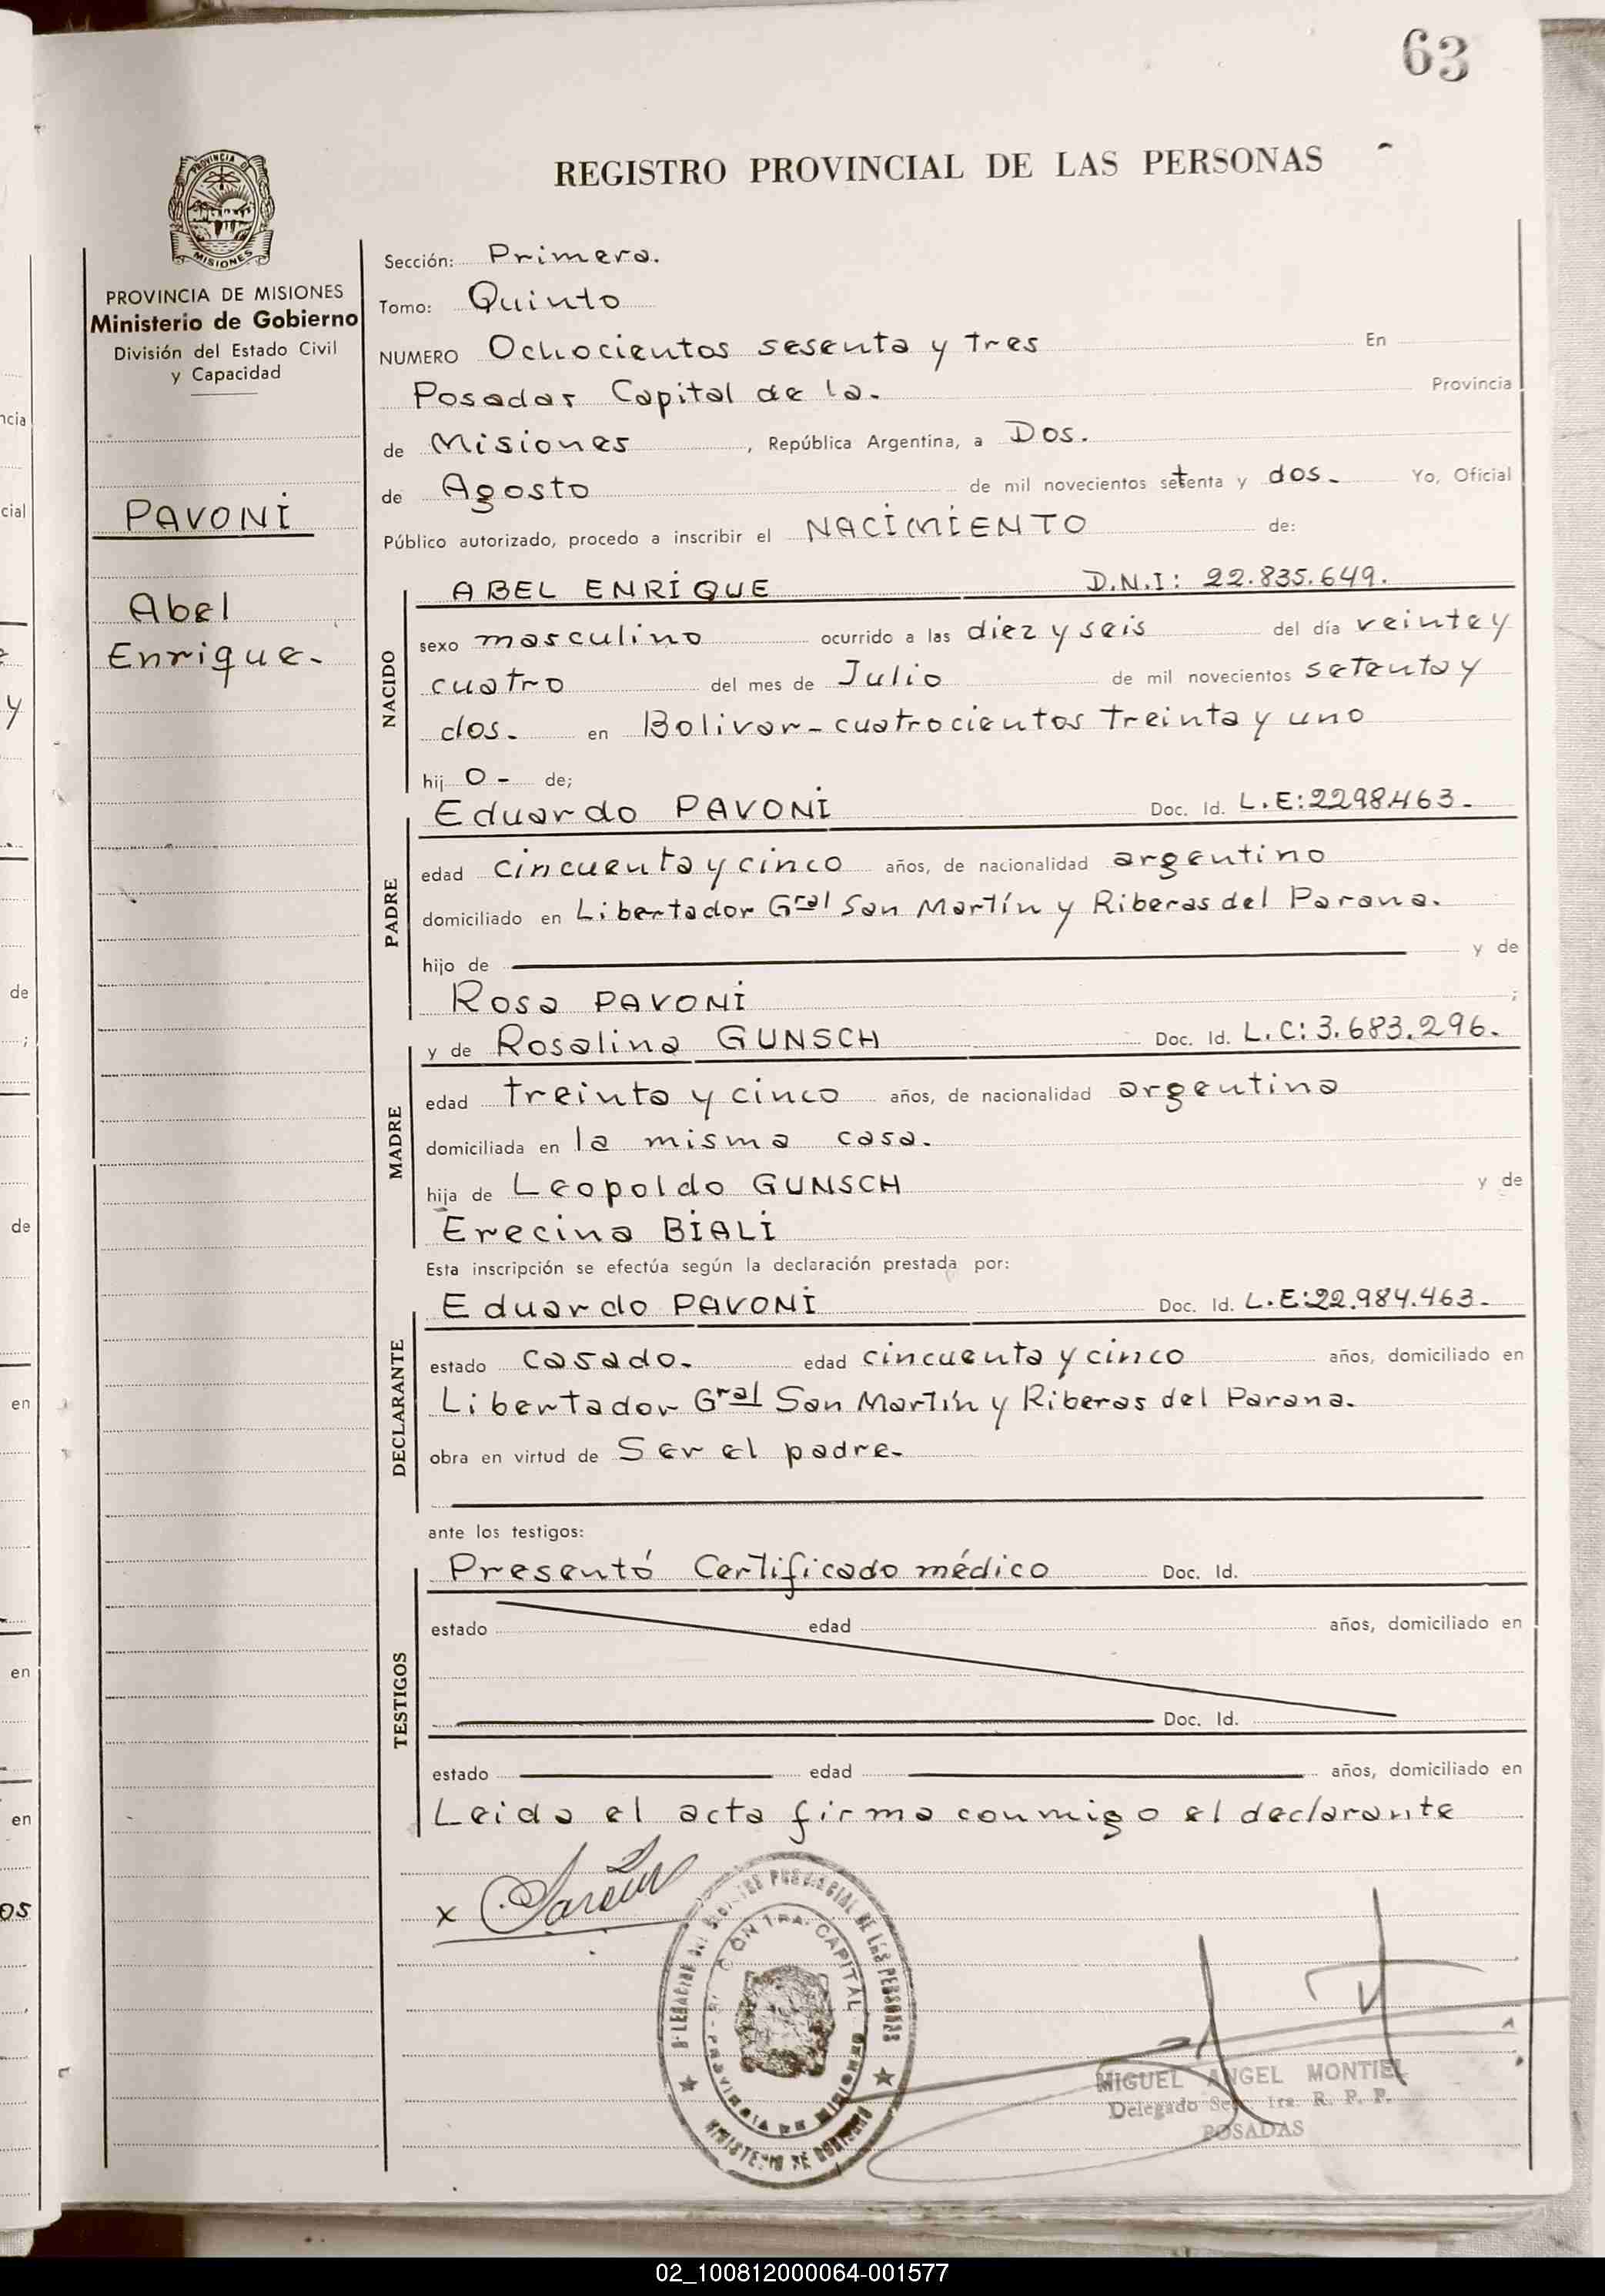 63
REGISTRO PROVINCIAL DE LAS PERSONAS
PROVINCIA DE
MISIONES
PROVINCIA DE MISIONES
Ministerio de Gobierno
División del Estado Civil
y Capacidad
PAVONI
Abel
Enrique.
Sección: Primera.
Tomo: Quinto
NUMERO Ochocientos sesenta y tres En
Posadas Capital de la. Provincia
de Misiones, República Argentina, a Dos.
de Agosto de mil novecientos setenta y dos. Yo, Oficial
Público autorizado, procedo a inscribir el NACIMIENTO de:
NACIDO
ABEL ENRIQUE D.N.I: 22.835.649.
sexo masculino ocurrido a las diez y seis del día veinte y
cuatro del mes de Julio de mil novecientos setenta y
dos. en Bolivar - cuatrocientos treinta y uno
hij o - de;
PADRE
Eduardo PAVONI Doc. Id. L.E:2298.463.
edad cincuenta y cinco años, de nacionalidad argentino
domiciliado en Libertador Gral San Martín y Riberas del Parana.
hijo de y de
Rosa PAVONI ;
MADRE
y de Rosalina GUNSCH Doc. Id. L.C: 3.683.296.
edad treinta y cinco años, de nacionalidad argentina
domiciliada en la misma casa.
hija de Leopoldo GUNSCH y de
Erecina BIALI
Esta inscripción se efectúa según la declaración prestada por:
DECLARANTE
Eduardo PAVONI Doc. Id. L.E:22.984.463.
estado casado. edad cincuenta y cinco años, domiciliado en
Libertador Gral San Martín y Riberas del Parana.
obra en virtud de Ser el padre.
ante los testigos:
TESTIGOS
Presentó Certificado médico Doc. Id.
estado edad años, domiciliado en
Doc. Id.
estado edad años, domiciliado en
Leida el acta firma conmigo el declarante
x
PROVINCIAL DE LAS PERSONAS
CAPITAL
MINISTERIO DE GOBIERNO
MIGUEL ANGEL MONTIEL
Delegado Sec. 1ra. R. P. P.
POSADAS
02_100812000064-001577